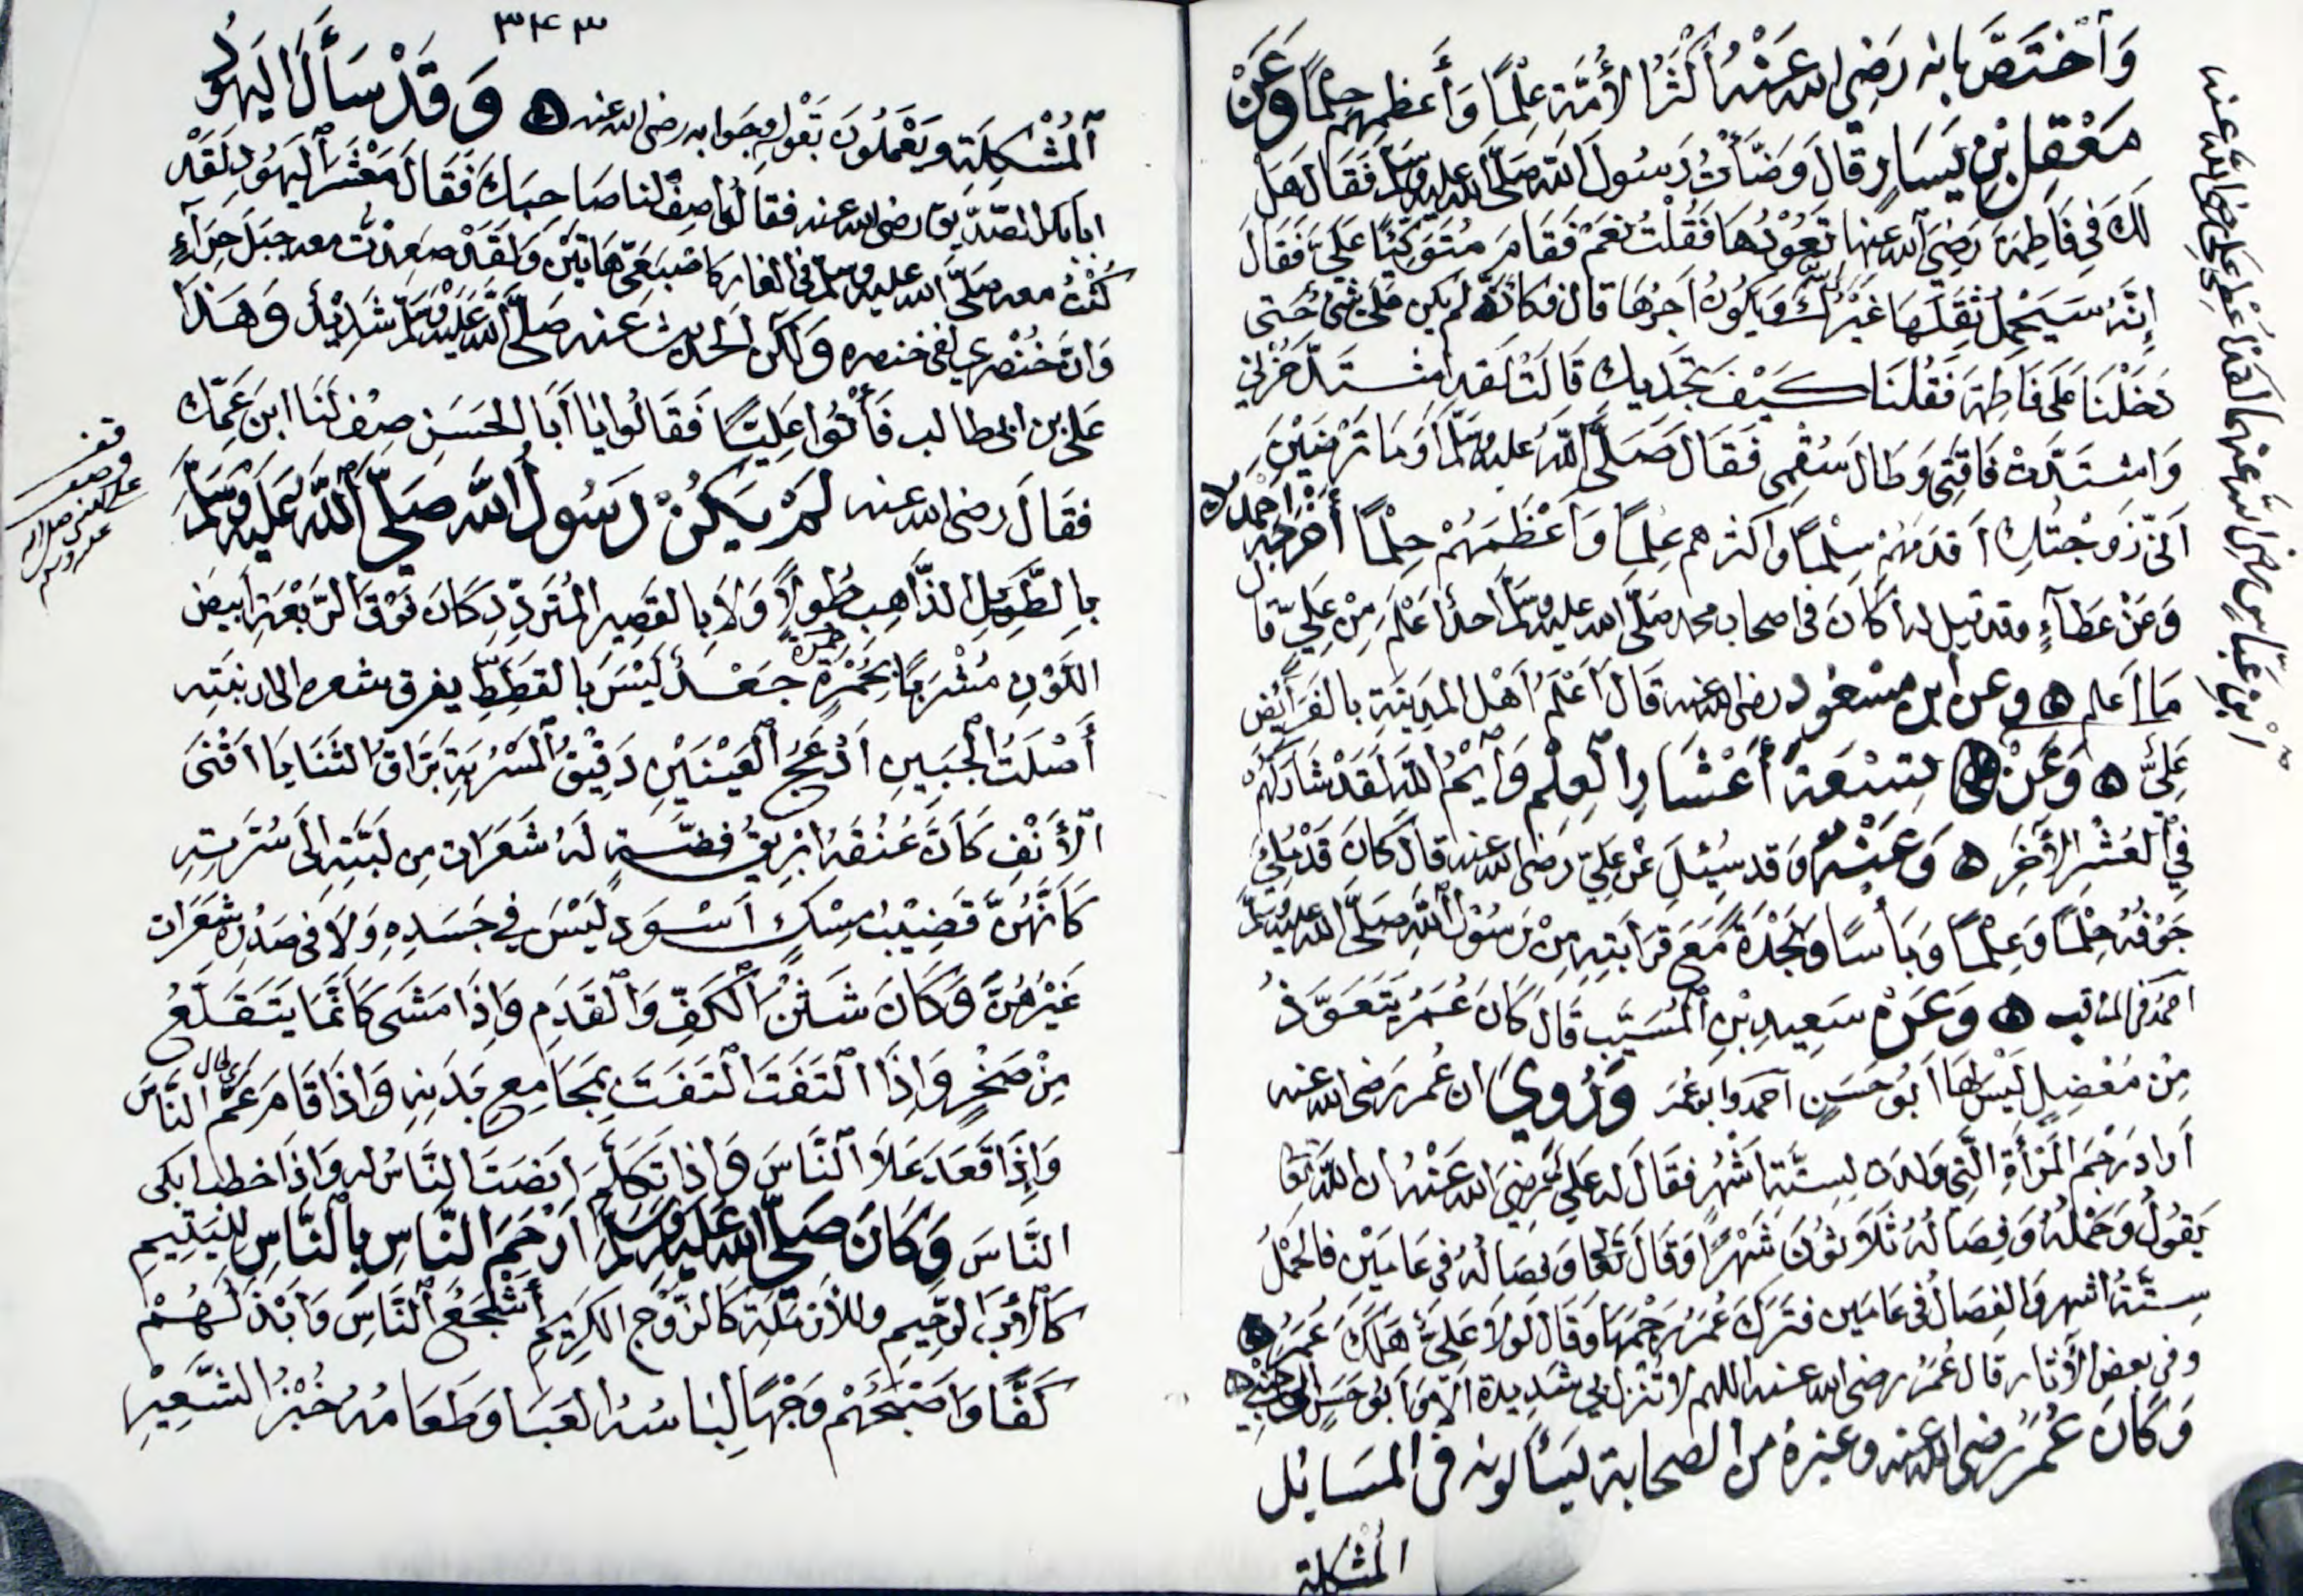 وَاخْتَصَّ بانه رَضِيَ الله عَنْهُ أَكْثَرُ الأُمَّة عِلْمًا وَأَعظمهم حِلْمًا وَعَنْ
مَعْقِلِ بْنِ يَسَارٍ قَالَ وَضَّأْتُ رَسُولَ اللهِ صَلَّى الله عليه وسلم فَقَالَ هَل
لَكَ فِي فَاطِمَةَ رَضِيَ الله عنها تَعُوْدُهَا فَقُلْتُ نَعَمْ فَقَامَ مُتَوَكِّئًا عَلَيَّ فَقَالَ
إِنَّهُ سَيَحْمِلُ ثِقَلَهَا غَيْرُكَ وَيَكُونُ اَجْرُهَا لَكَ قال فكانه لم يكن عَلَيَّ شَيْءٌ حَتى
دَخَلْنَا عَلَى فَاطِمَةَ فَقُلْنَا كَيْفَ تَجِدِيك قَالَتْ لَقد اشتدّ حُزْني
وَاشتَدَّتْ فَاقَتِي وَطَالَ سُقْمِي فَقَالَ صَلَّى اللهُ عليه وسلم أَوَمَا تَرْضَيْنَ
اَنّي زَوَجْتُكِ اَقدَمَهُمْ سِلْمًا وَاكثرهم عِلمًا وَاَعْظَمَهُمْ حِلْمًا أَخْرَجَهُ احمد
وَعَنْ عَطَآءٍ وقد قيل له أَكَانَ في اصحاب محمد صَلَّى الله عليه وسلم احدٌ اَعْلَم مِنْ عَلِيّ قال لا
مَا اَعلم ه وعن ابن مسْعُودٍ رضي الله عنه قَالَ اَعْلَمُ اَهْلِ المدِينَةِ بالفَرَائِض
عَلِيٌّ ه وَعَنْ تِسْعَة أَعْشَارِ الْعِلْمِ وَايْمُ اللهِ لَقَدْ شَارَكَهُمْ
فِي الْعُشْرِ الْآخَرِ ه وَعَنْهُ وَقد سُئِلَ عَنْ عَلِيّ رضي الله عنه قَالَ كَانَ قَدْ مُلِئَ
جَوْفُهُ حِلْمًا وَعِلْمًا وَبَأْسًا وَنَجْدَةً مَعَ قَرَابَتِهِ مِنْ رَسُوْلِ اللهِ صَلَّى الله عليه وسلم
احمد في المناقب ه وَعَنْ سَعِيدِ بْنِ الْمُسَيَّبِ قَالَ كَانَ عُمَرُ يَتَعَوَّذُ
مِنْ مُعْضِلٍ لَيْسَ لهَا اَبُو حَسَن احمد وابو عُمَر وَرُوِيَ ان عُمر رَضي الله عنه
اَرَادَ رَجْمَ الْمَرْأَةِ الَّتِي وَلَدَت لِسِتَّة اَشْهُرٍ فقَالَ له عَلِيٌّ رَضِيَ الله عَنْهُ ان الله تعَا
يَقُولُ وَحَمْلُهُ وَفِصَالُهُ ثَلاَثُونَ شَهْرًا وَقَالَ تَعَا وَفِصَالُهُ في عَامَيْنِ فالحَمْلُ
سِتَّةُ اَشهر وَالفِصَالُ في عَامَين فتَرَكَ عُمَرُ رَجْمَهَا وَقَالَ لَوْلاَ عَلِيٌّ هَلَكَ عُمَرُ ه
وفي بعض الأَثَار قال عُمَرُ رضي الله عنه اللهم لا تُنْزِلْ بِي شَدِيدَةً الاّ وَاَبُو حَسَنٍ الى جَنْبي ه
وَكَانَ عُمَرُ رضي الله عنه وغيرهُ من الصحابة يَسْأَلونه في المسَائِل
المُشْكلة
بْن عَبَّاسٍ رَضِيَ الله عنهما لَقَدْ اُعْطِيَ عَلِي رضي الله عنه
٣٤٣
الْمُشْكِلَةِ وَيَعْمَلُونَ بقَوْله وجَوابه رضي الله عنه ه وَقَدْ سَأَلَ اليَهُودُ
ابا بَكر الصّدّيق رضي الله عنه فقالُوا صِفْ لنا صَاحِبَكَ فَقَالَ مَعْشَرَ الْيَهُود لَقَدْ
كُنْتُ معه صَلَّى الله عليه وسلم في الغار كَاصْبَعَيَّ هَاتَيْنِ وَلَقَدْ صَعِدْتُ معه جَبَلَ حِرَآءٍ
وَانَّ خُنْصُرِي لفي خنصره وَلَكِن الْحَدِيث عنه صَلَّى الله عليه وسلم شَدِيْدٌ وَهَذَا
عَلي بن ابي طالب فَأَتَوْا عَلِيًّا فَقَالُوا يَا أَبَا الحَسَنِ صِفْ لَنَا ابنَ عَمِّك
فقَالَ رضي الله عنه لَمْ يَكُنْ رَسُولُ اللهِ صَلَّى اللهُ عَلَيْهِ وَسَلَّمَ
بِالطَّوِيْلِ الذَّاهِب طُولاً وَلاَ بِالقَصِيرِ المُتَرَدِّدِ كَانَ فَوْقَ الرَّبْعَةِ اَبيَض
اللَّوْنِ مُشْرَبًا بِحُمْرَةٍ جَعْد لَيْسَ بِالقَطِطِّ يفرق شعره الى اذنيه
أَصْلَتُ الْجَبِينِ اَدْعَجُ الْعَيْنَيْنِ دَقِيْقُ الْمَسْرُبَةِ بَرَّاقُ الثَّنَايَا اَقْنَى
الْأَنْفِ كَأَنَّ عُنُقَهُ اِبْرِيقُ فِضَّةٍ لَهُ شَعَرَات مِن لَبَّتِهِ اِلَى سُرَّتِهِ
كَاَنَّهُنَّ قَضِيْبُ مِسْكٍ اَسْوَد لَيْسَ فِي جَسَدِهِ وَلاَ في صَدْرِه شَعَرَات
غَيْرُهُنَّ وَكَانَ شَثْنَ الْكَفِّ وَالْقَدَمِ وَاِذَا مَشَى كَاَنَّمَا يَتَقَلَّعُ
مِنْ صَخْرٍ وَاِذَا الْتَفَتَ الْتَفَتَ بِمَجَامِعِ بَدَنِهِ وَاِذَا قَامَ غَمَّ النَّاسَ
وَاِذَا قَعَدَ عَلاَ النَّاسَ وَاِذَا تَكَلَّمَ اَنصَتَ النَّاسُ له وَاِذَا خطب ابكى
النَّاسَ وَكَانَ صَلَّى الله عَلَيْهِ وَسَلَّمَ اَرْحَمَ النَّاسِ بِالنَّاسِ لِليَتِيمِ
كَالأَبِ الرَّحِيمِ وللأَرْمَلَةِ كَالزَّوْجِ الكَرِيْمِ أَشْجَعُ النَّاسِ وَاَبْذَلَهُمْ
كَفًّا وَاَصْبَحَهُمْ وَجْهًا لِبَاسُهُ العَبَا وَطَعَامُهُ خُبْزُ الشَّعِيْرِ
قف
وصف
علي النبي صلى الله
عليه وسلم